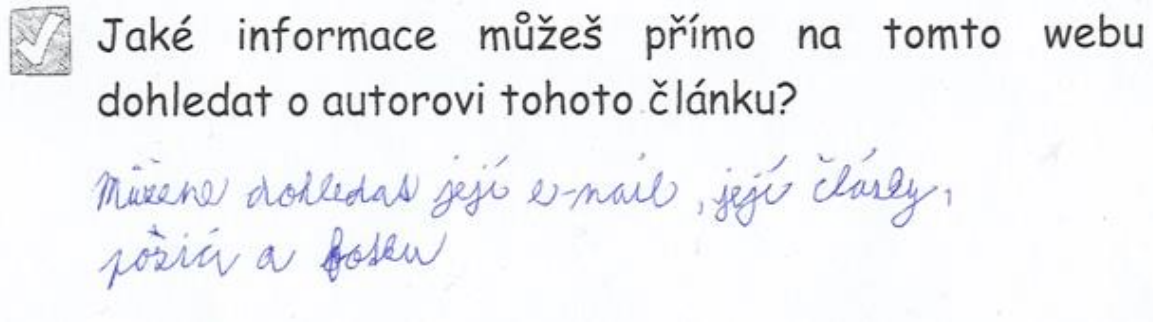 Jaké informace můžeš přímo na tomto webu
dohledat o autorovi tohoto článku?
Můžeme dohledat její e-mail, její články,
pozici a fotku